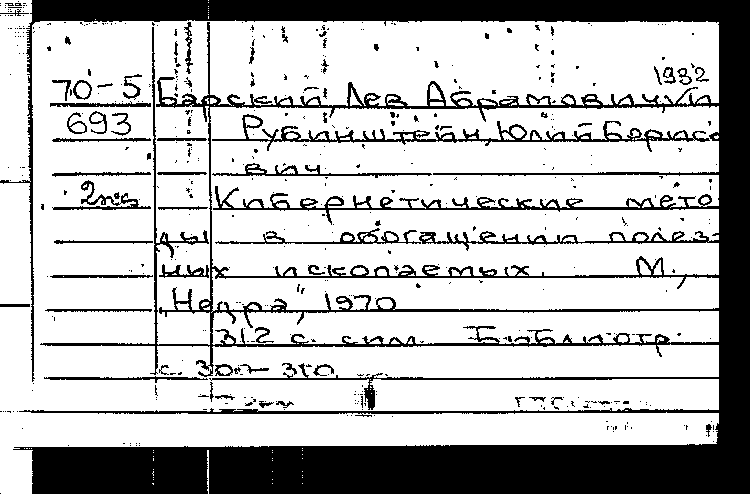 1932
70-5 Барский, Лев Абрамович, и
693 Рубинштейн, Юлий Борисо
вич.
2экз Кибернетические мето
ды в обогащении полез-
ных ископаемых. М.,
„Недра", 1970
312 с. с ил. Библиогр:
с. 300-310.